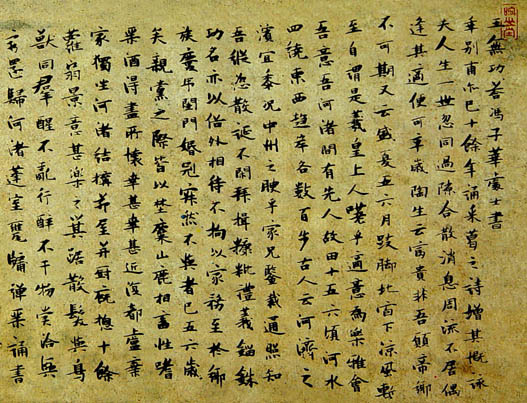 王無功答馮子華處士書
乖別甫尔已十餘年誦采葛之詩增其慨詠
夫人生一世忽同過隙合散消息周流不居偶
逢其適便可卒歲陶生云富貴非吾願帝鄉
不可期又云盛夏五六月跂脚北窗下涼風暫
至自謂是羲皇上人嗟乎適意為樂雅會
吾意吾河渚間有先人故田十五六頃河水
四繞東西趣岸各數百步古人云河濟之
濱宜黍況中州之腴乎家兄鑒裁通照知
吾縱恣散誕不閑拜揖糠粃禮義錙銖
功名亦以俗外相待不拘以家務至於鄉
族慶吊閨門婚冠寂然不與者已五六歲
矣親黨之際皆以埜麋山鹿相畜性嗜
琴酒得盡所懷幸甚幸甚近復都盧棄
家獨坐河渚結構茅室并厨厩總十餘
景意甚樂之箕踞散髮與鳥
獸同羣醒不亂行醉不干物賞洽興
窮還歸河渚蓬室甕牖彈琴誦書